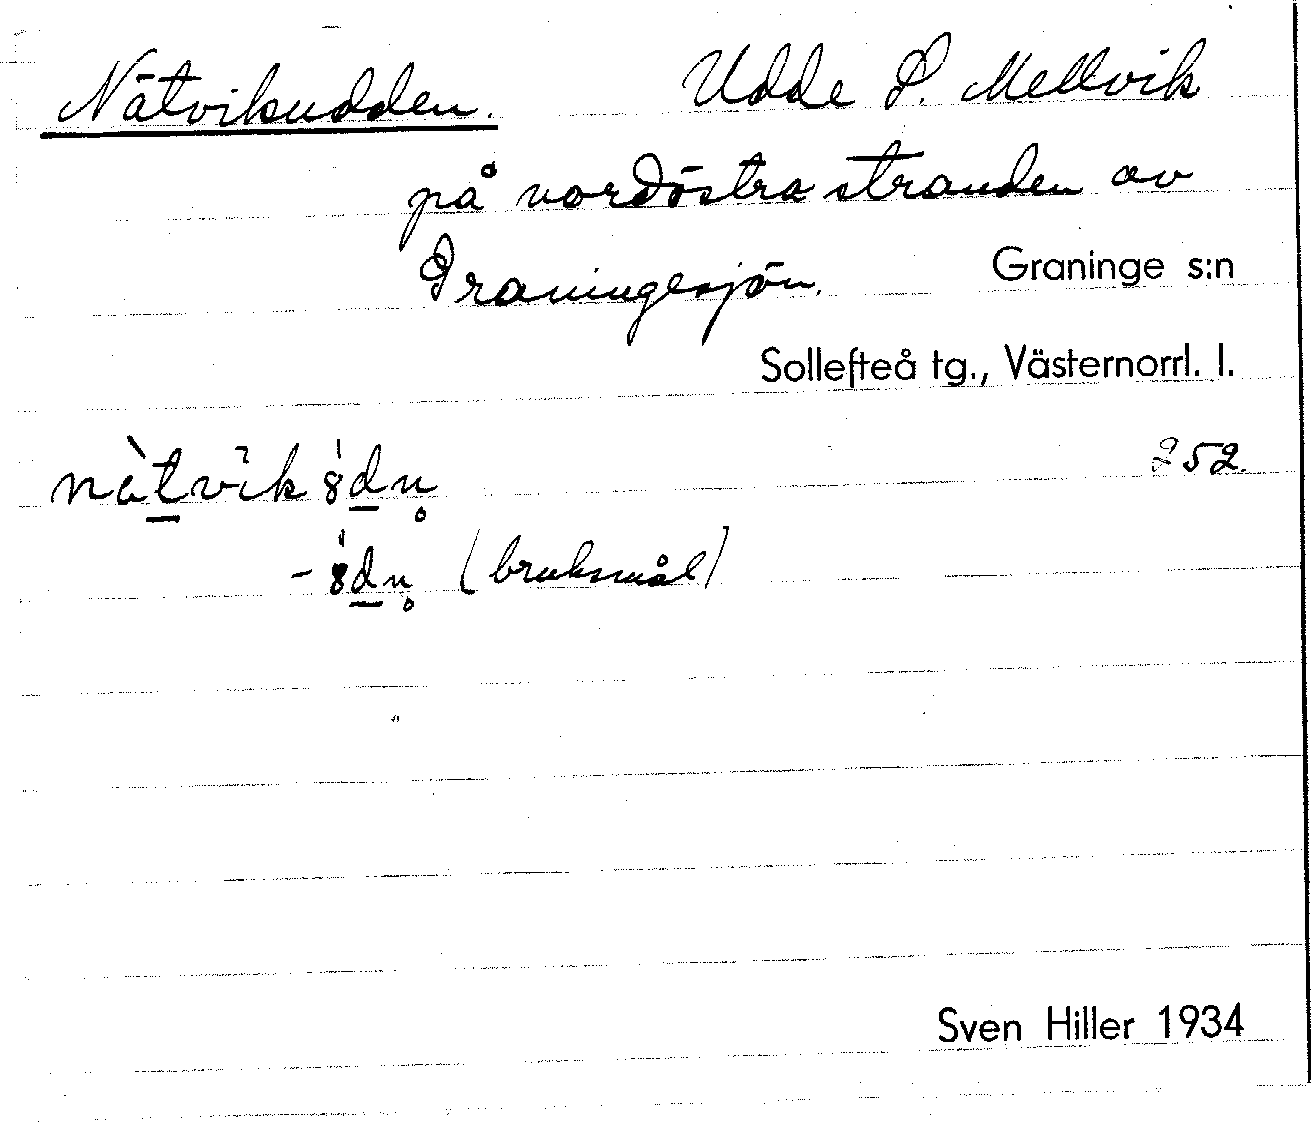 Nätvikudden. Udde S. Mellvik
på nordöstra stranden av
Graningesjön. Graninge s:n
Sollefteå tg., Västernorrl. l.
252.
(bruksmål)
Sven Hiller 1934